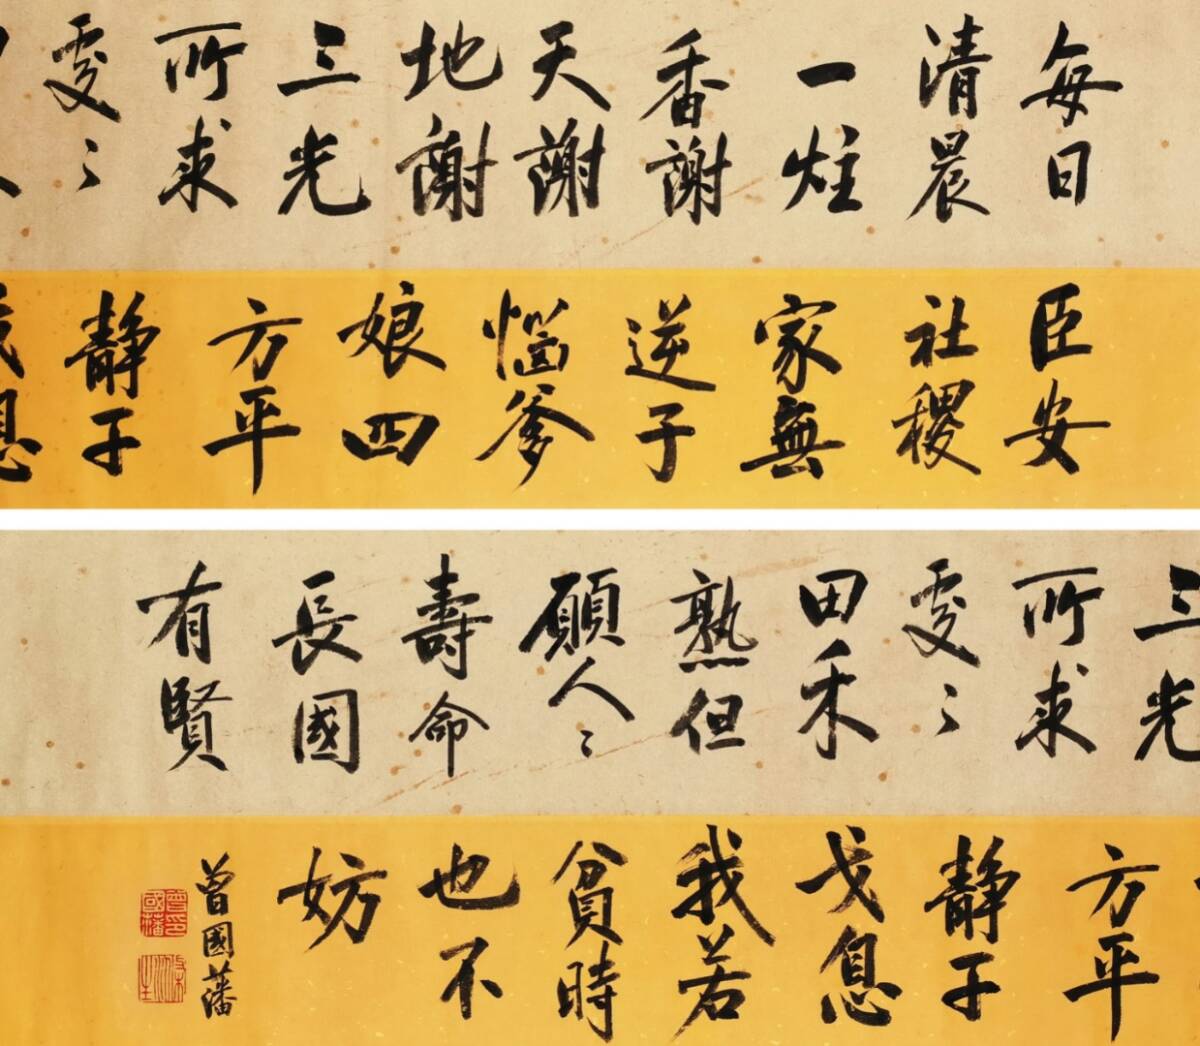 每日
清晨
一炷
香謝
天謝
地謝
三光
所求
處〻
臣安
社稷
家無
逆子
惱爹
娘四
方平
静干
三光
所求
處〻
田禾
熟但
願人〻
壽命
長國
有賢
方平
静干
戈息
我若
貧時
也不
妨
曾國藩
曾國藩印